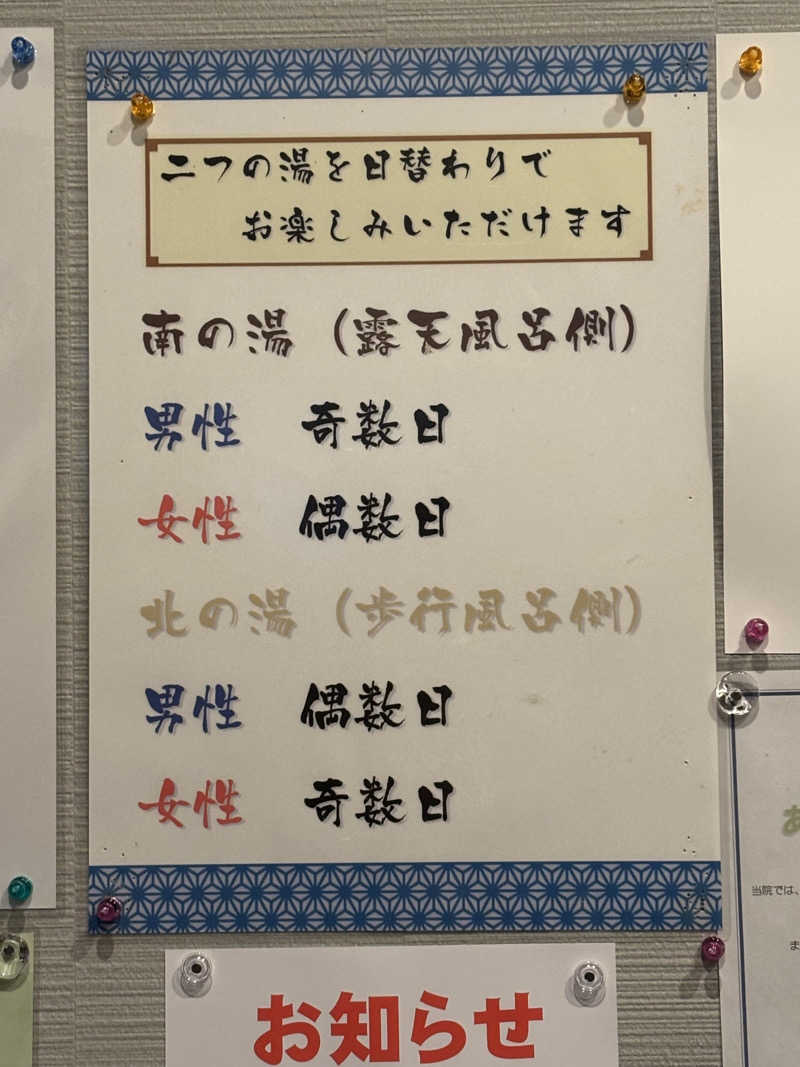 二つの湯を日替わりで
お楽しみいただけます
南の湯（露天風呂側）
男性　奇数日
女性　偶数日
北の湯（歩行風呂側）
男性　偶数日
女性　奇数日
お
当院では、
ま
お知らせ